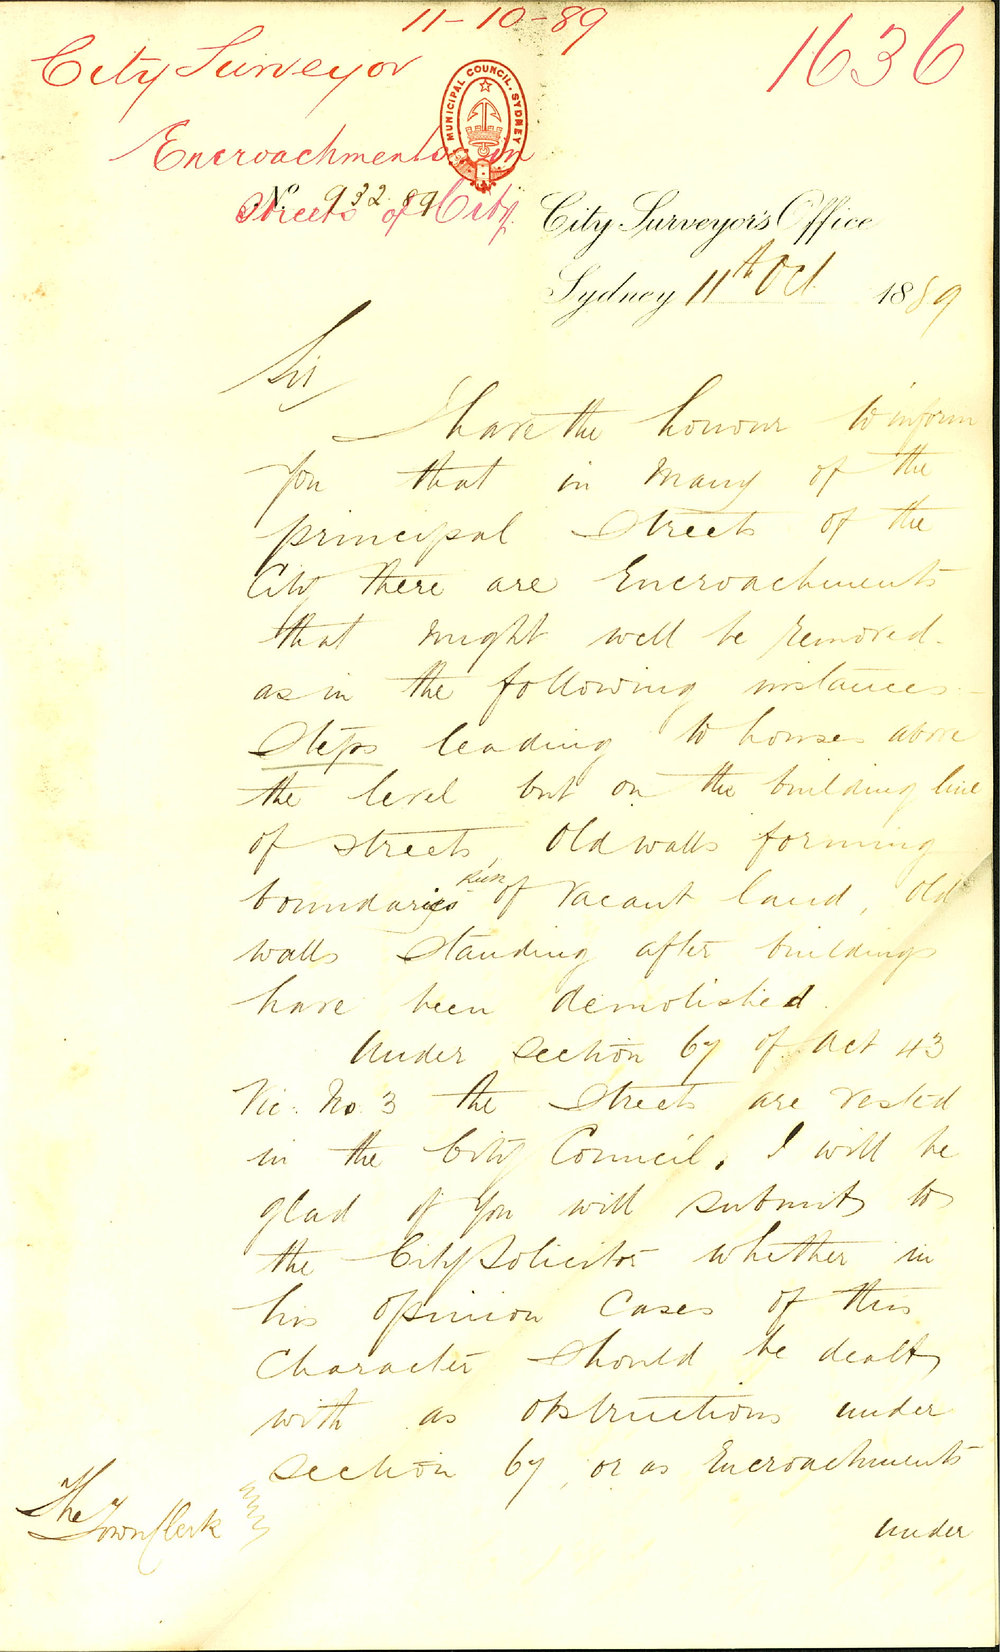 11-10-89
1636
City Surveyor
MUNICIPAL COUNCIL. SYDNEY
Encroachments on
Streets of City
No. 932 89
City Surveyor's Office
Sydney 11th Oct 1889
Sir
I have the honour to inform
you that in many of the
principal Streets of the
City there are Encroachments
that might well be removed.
as in the following instances -
Steps leading to houses above
the level but on the building line
of streets, Old walls forming
boundaries of vacant land, Old
walls standing after buildings
have been demolished.
Under section 67 of Act 43
Vic. No. 3 the Streets are vested
in the City Council. I will be
glad if you will submit to
the City Solicitor whether in
his opinion Cases of this
Character should be dealt
with as obstructions under
section 67, or as Encroachments
The
Town Clerk
under